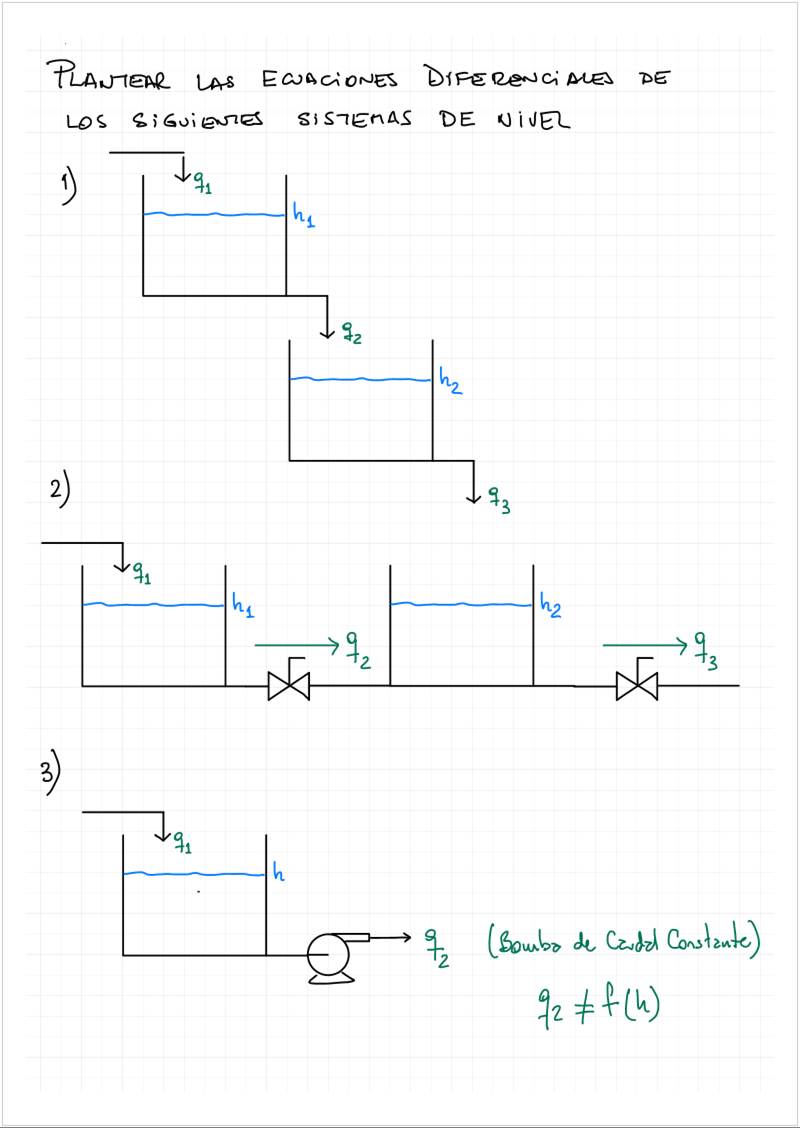 PLANTEAR LAS ECUACIONES DIFERENCIALES DE
LOS SIGUIENTES SISTEMAS DE NIVEL
1)
q₁
h₁
q₂
h₂
q₃
2)
q₁
h₁
q₂
h₂
q₃
3)
q₁
h
q₂ (Bomba de Caudal Constante)
q₂ ≠ f(h)